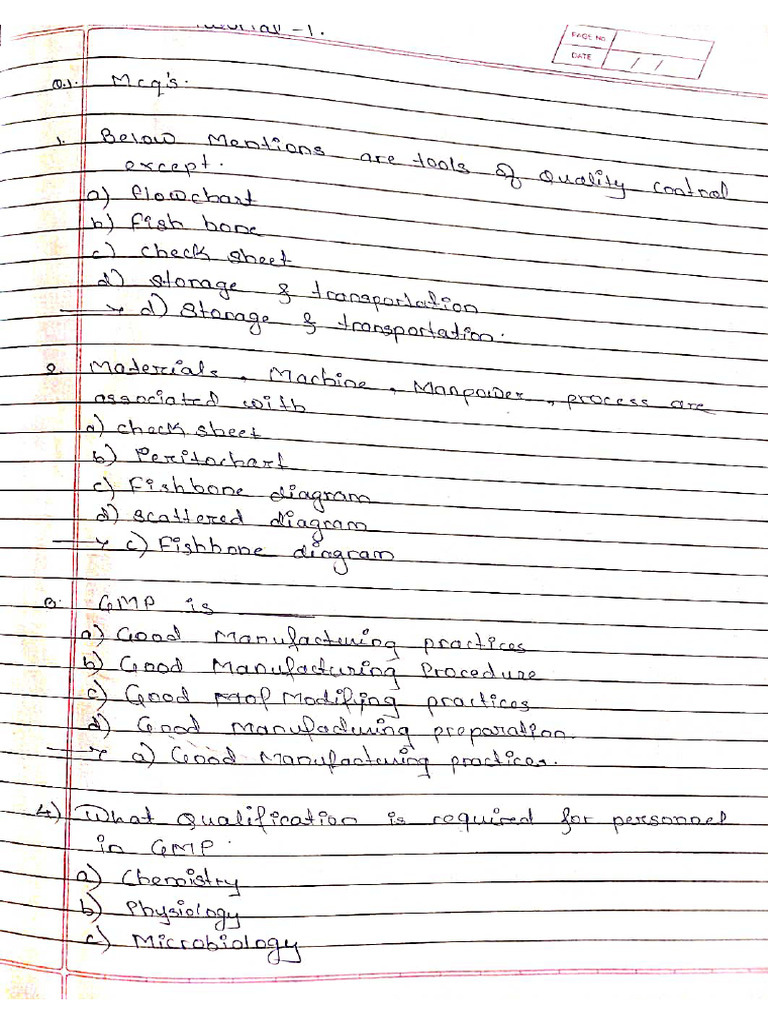 Tutorial -1.
PAGE NO
DATE / /
Q.1. Mcq's.
1. Below Mentions are tools of Quality control
except.
a) flowchart
b) fish bone
c) check sheet
d) storage & transportation
→ d) storage & transportation.
2. Materials, Machine, Manpower, process are
associated with
a) check sheet
b) Peritochart
c) Fishbone diagram
d) scattered diagram
→ c) Fishbone diagram
3. GMP is
a) Good Manufacturing practices
b) Good Manufacturing Procedure
c) Good Modifying practices
d) Good Manufacturing preparation.
→ a) Good Manufacturing practices.
4) What Qualification is required for personnel
in GMP.
a) Chemistry
b) Physiology
c) Microbiology